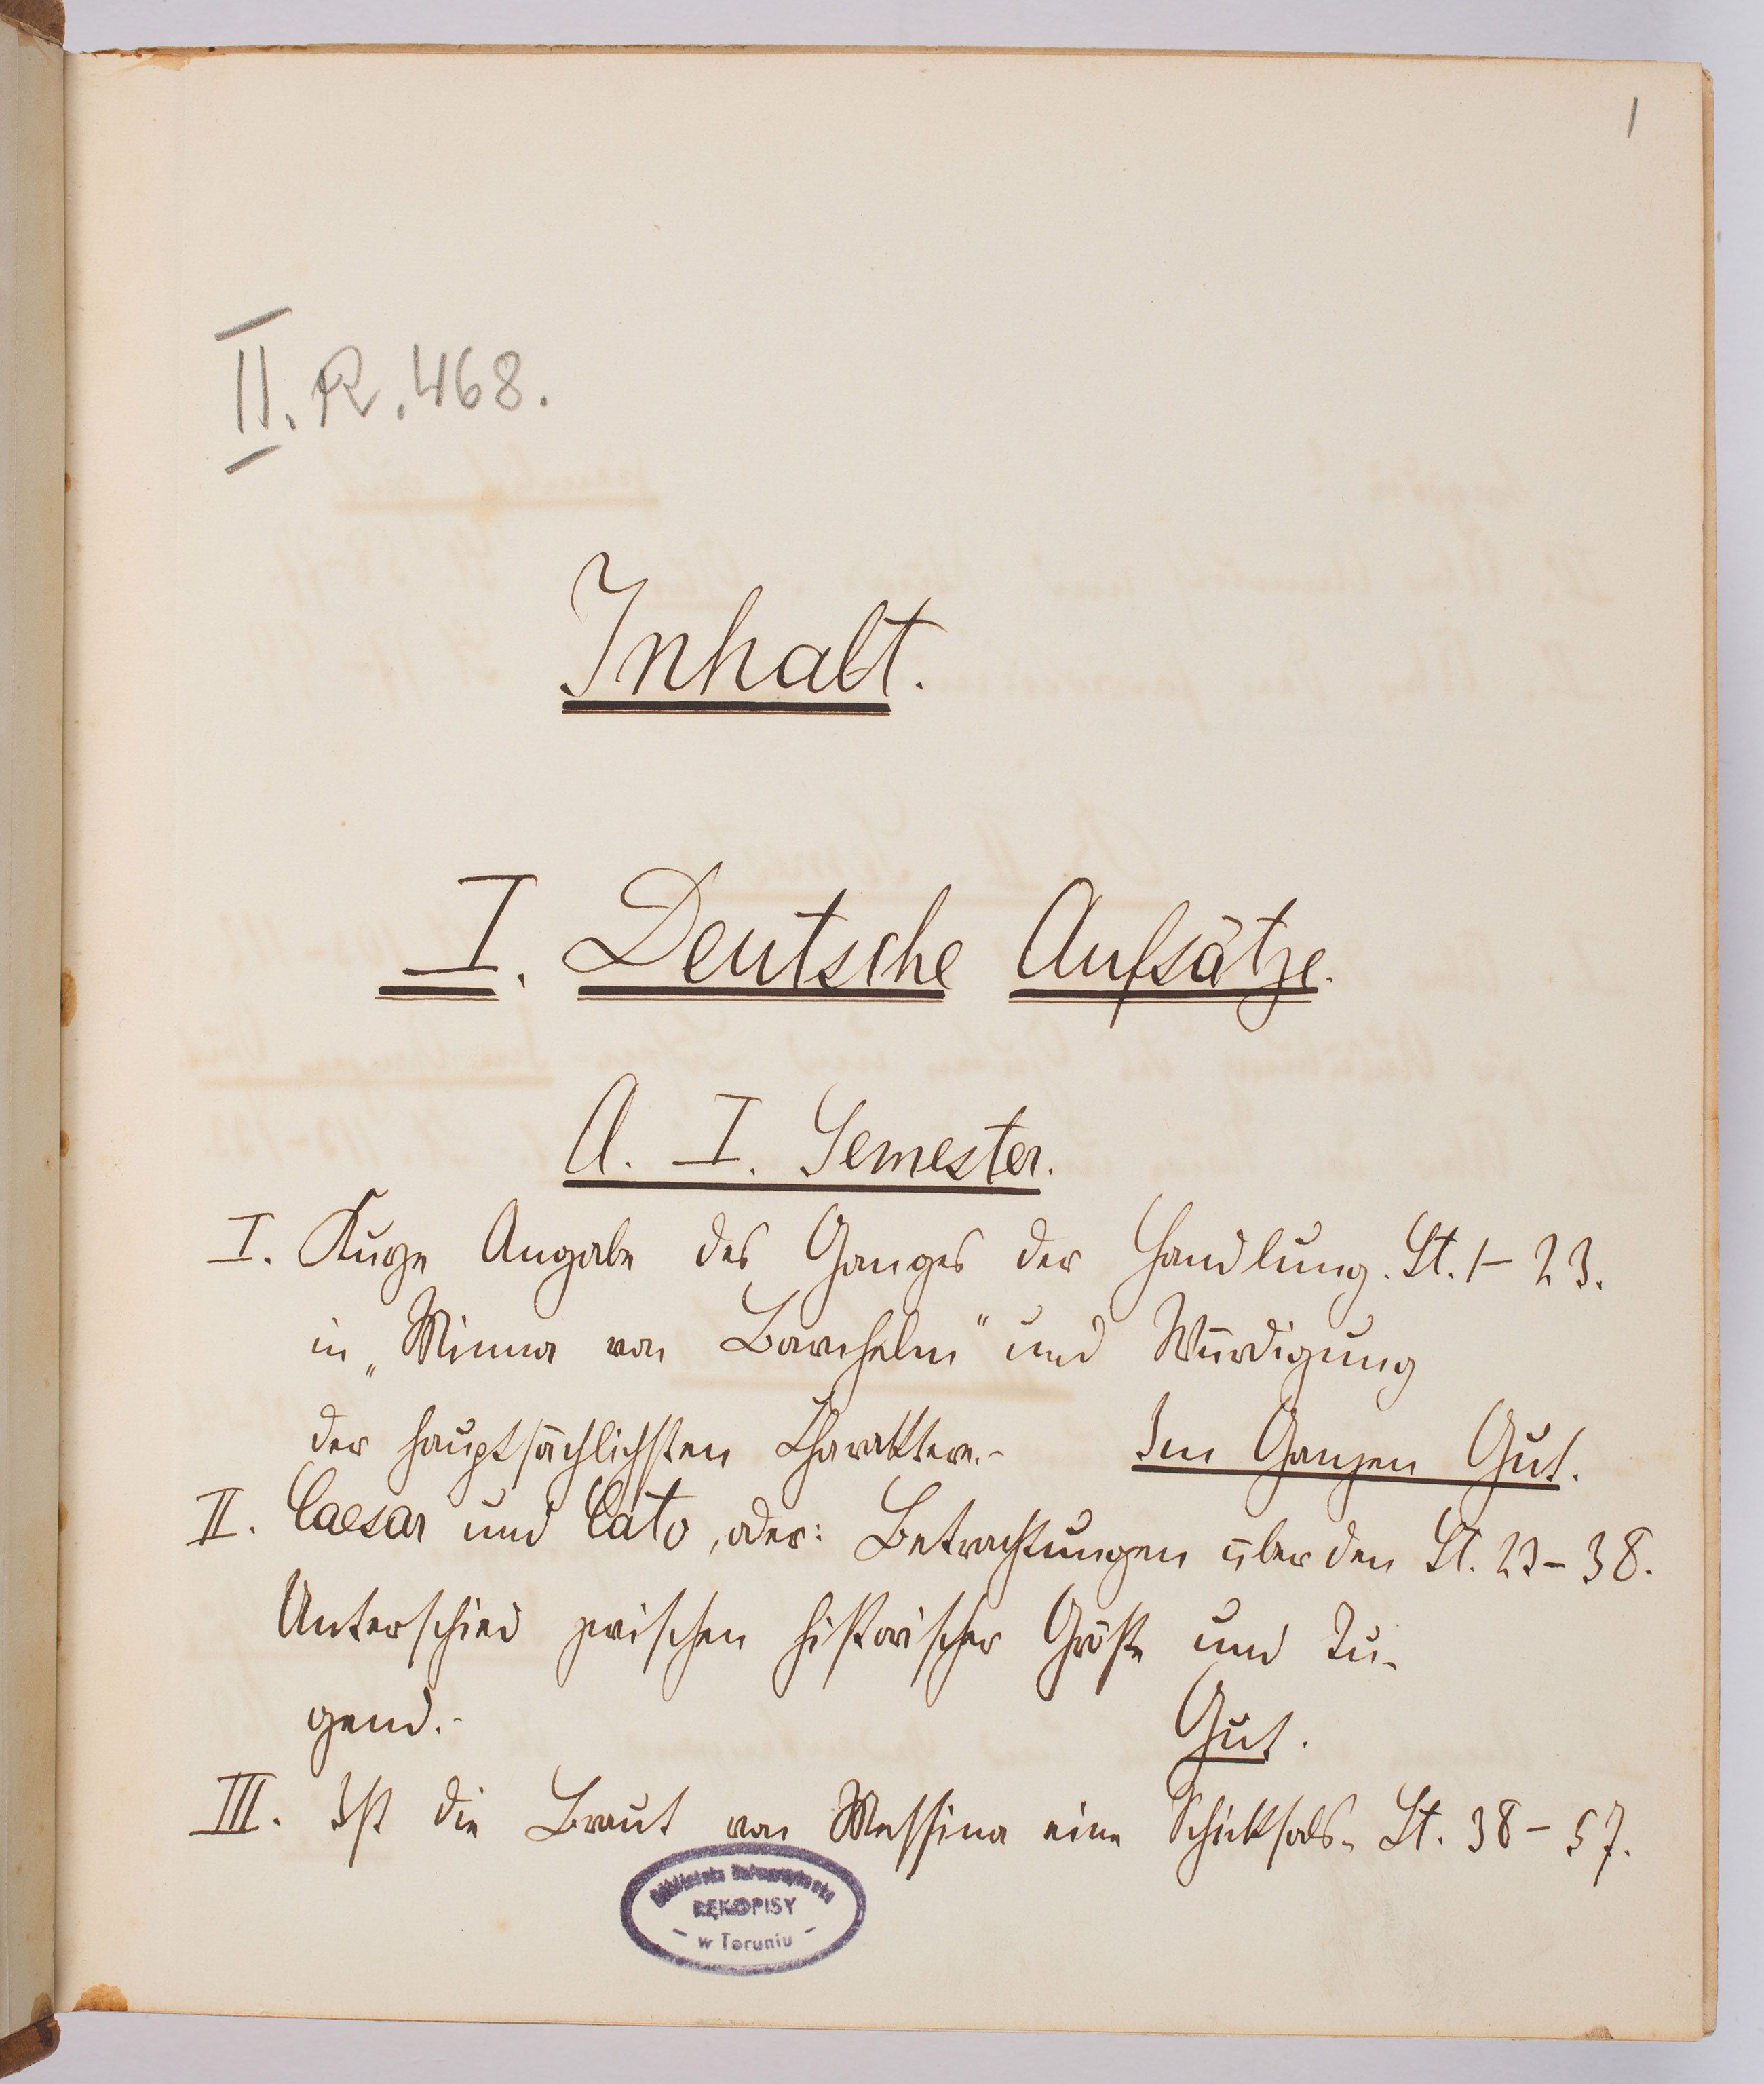 1
II. R. 468.
Inhalt.
I. Deutsche Aufsätze.
A. I. Semester.
I. Kurze Angabe des Ganges der Handlung. St. 1-23.
in „Minna von Barnhelm" und Würdigung
der hauptsächlichsten Charaktere.- Im Ganzen Gut.
II. Caesar und Cato, oder: Betrachtungen über den St. 23-38.
Unterschied zwischen historischer Größe und Tu-
gend.- Gut.
III. Ist die Braut von Messina eine Schicksals- St. 38-57.
Biblioteka Uniwersytecka
RĘKOPISY
- w Toruniu -